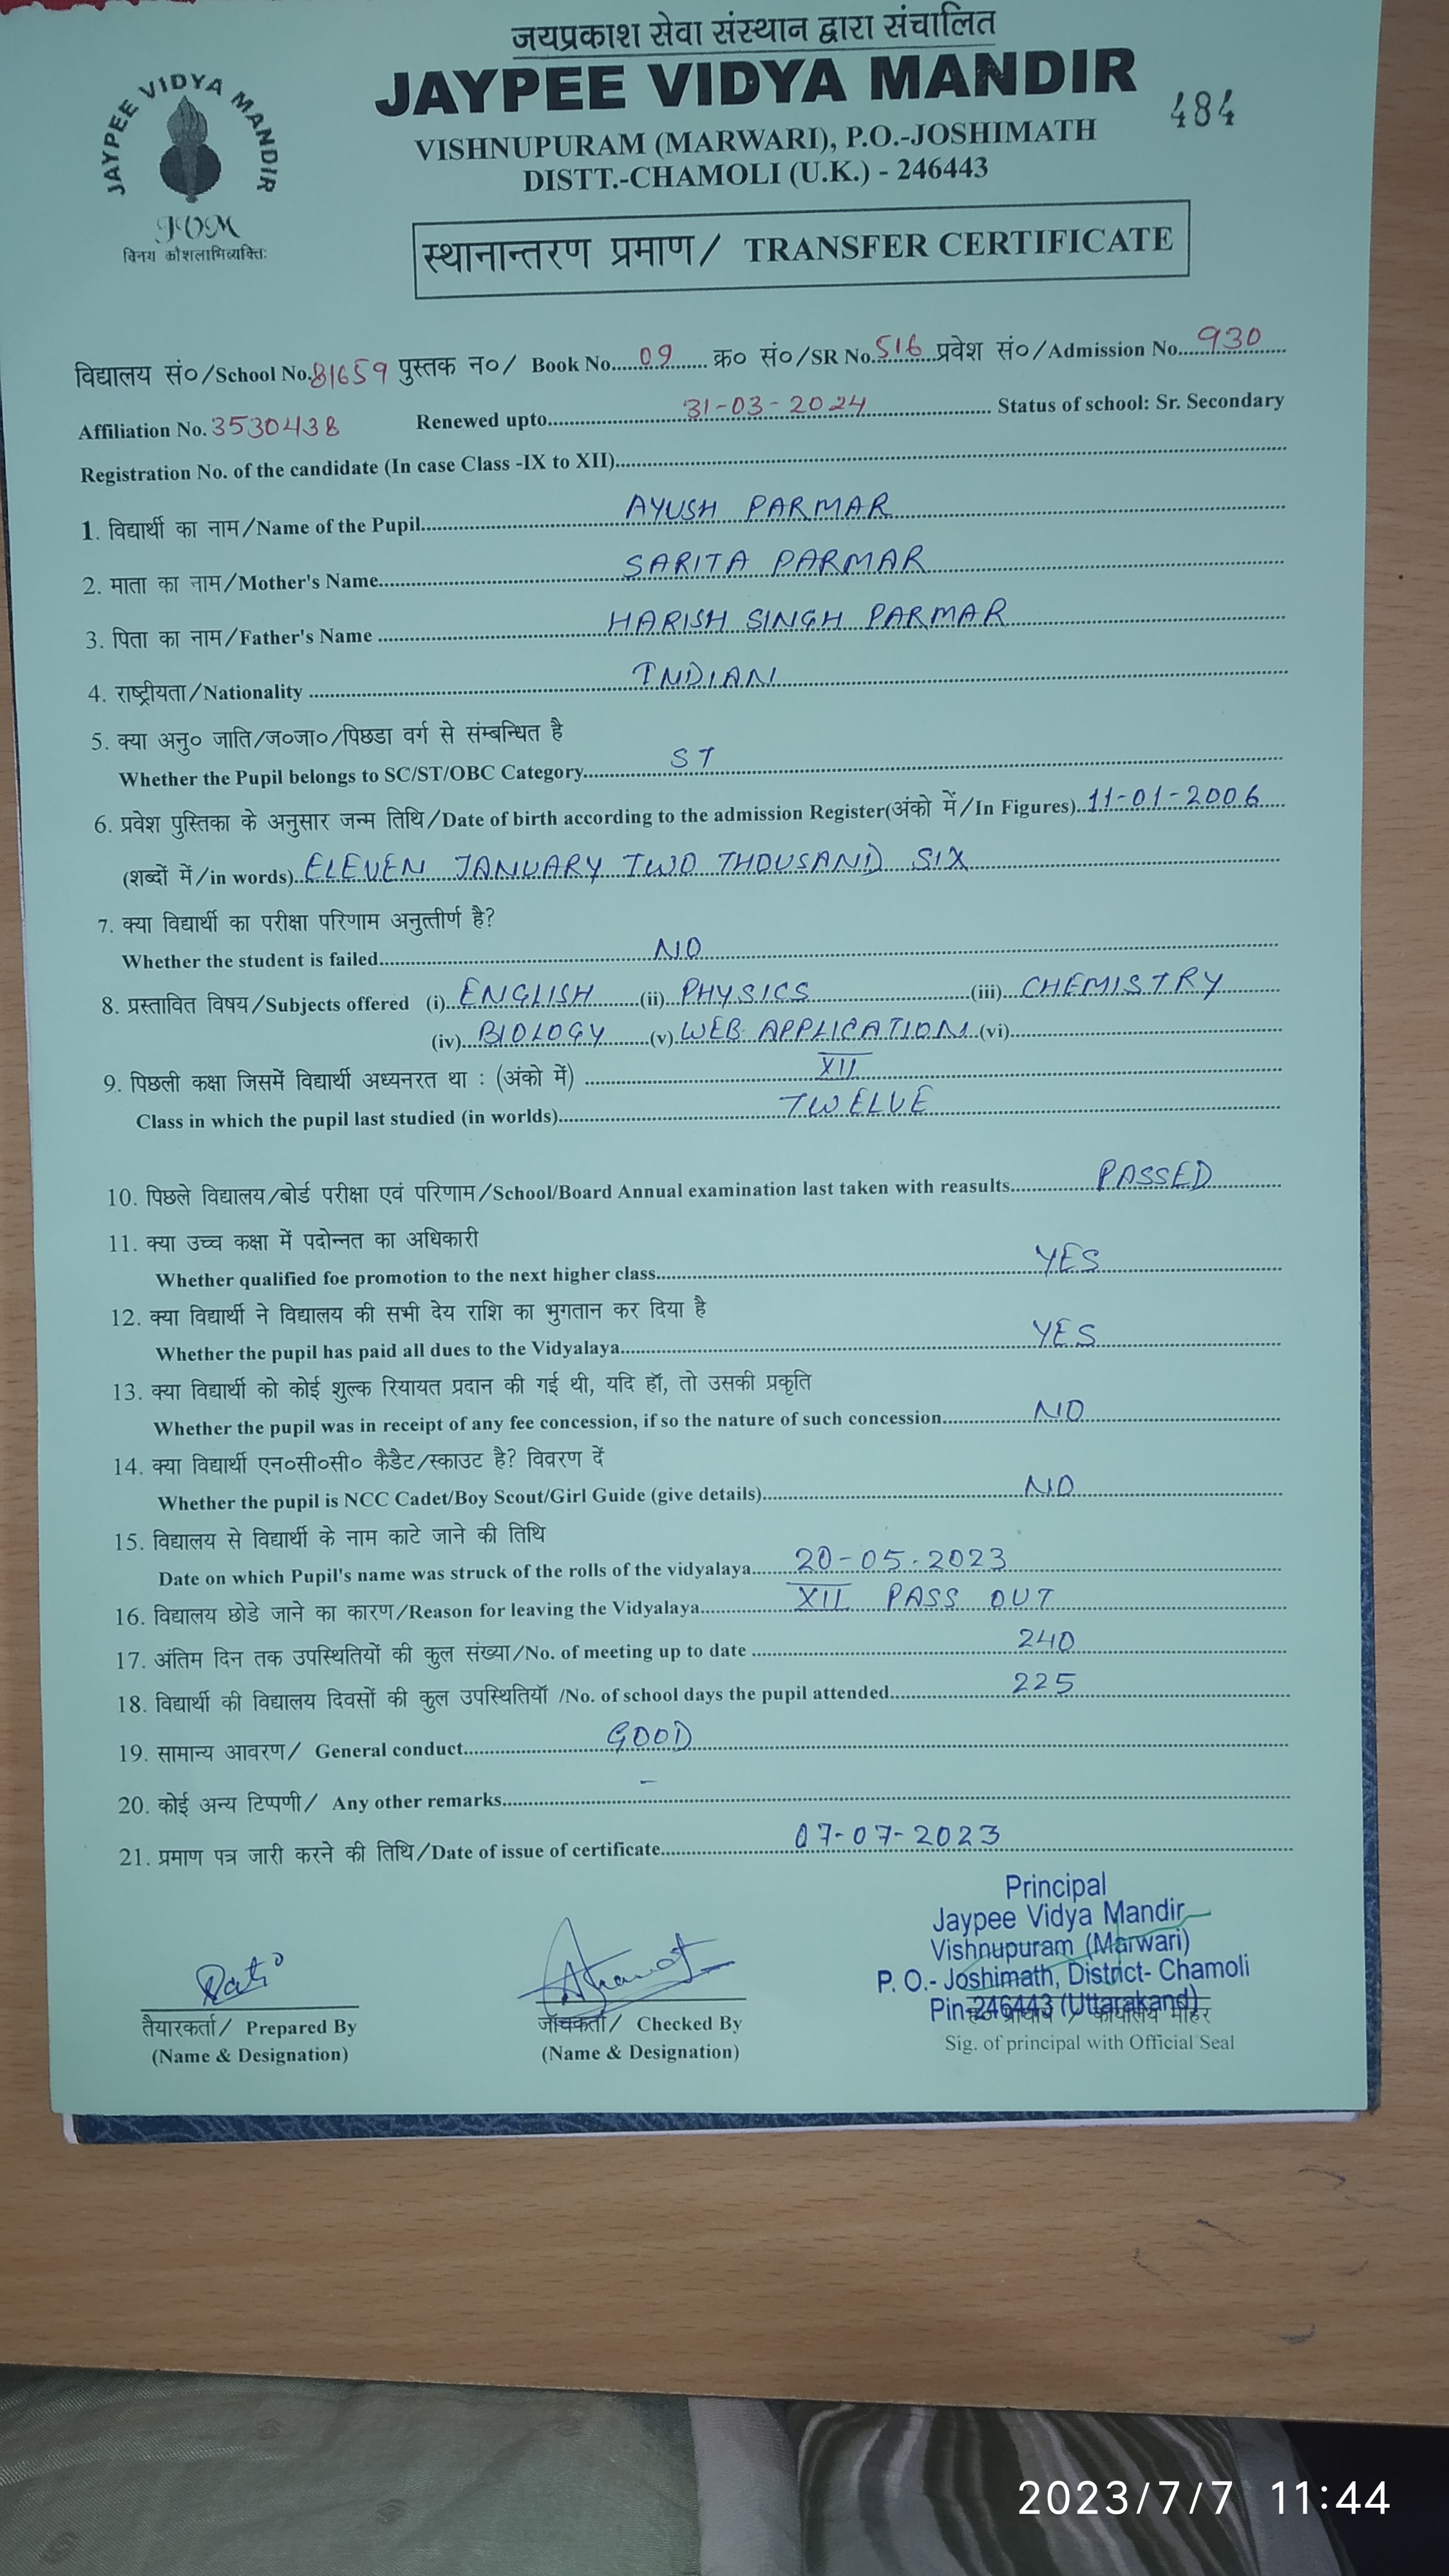 जयप्रकाश सेवा संस्थान द्वारा संचालित
JAYPEE VIDYA MANDIR
JAYPEE VIDYA MANDIR
484
VISHNUPURAM (MARWARI), P.O.-JOSHIMATH
DISTT.-CHAMOLI (U.K.) - 246443
JVM
विनय कौशलाभिव्यक्तिः
स्थानान्तरण प्रमाण/ TRANSFER CERTIFICATE
विद्यालय सं०/School No. 81659 पुस्तक न०/ Book No. 09 क्र० सं०/SR No. 516 प्रवेश सं०/Admission No. 930
Affiliation No. 3530438 Renewed upto 31-03-2024 Status of school: Sr. Secondary
Registration No. of the candidate (In case Class -IX to XII)
1. विद्यार्थी का नाम/Name of the Pupil AYUSH PARMAR
2. माता का नाम/Mother's Name SARITA PARMAR
3. पिता का नाम/Father's Name HARISH SINGH PARMAR
4. राष्ट्रीयता/Nationality INDIAN
5. क्या अनु० जाति/ज०जा०/पिछडा वर्ग से संम्बन्धित है
Whether the Pupil belongs to SC/ST/OBC Category ST
6. प्रवेश पुस्तिका के अनुसार जन्म तिथि/Date of birth according to the admission Register(अंको में/In Figures) 11-01-2006
(शब्दों में/in words) ELEVEN JANUARY TWO THOUSAND SIX
7. क्या विद्यार्थी का परीक्षा परिणाम अनुत्तीर्ण है?
Whether the student is failed NO
8. प्रस्तावित विषय/Subjects offered (i) ENGLISH (ii) PHYSICS (iii) CHEMISTRY
(iv) BIOLOGY (v) WEB APPLICATION (vi)
9. पिछली कक्षा जिसमें विद्यार्थी अध्यनरत था : (अंको में) XII
Class in which the pupil last studied (in worlds) TWELVE
10. पिछले विद्यालय/बोर्ड परीक्षा एवं परिणाम/School/Board Annual examination last taken with reasults PASSED
11. क्या उच्च कक्षा में पदोन्नत का अधिकारी
Whether qualified foe promotion to the next higher class YES
12. क्या विद्यार्थी ने विद्यालय की सभी देय राशि का भुगतान कर दिया है
Whether the pupil has paid all dues to the Vidyalaya YES
13. क्या विद्यार्थी को कोई शुल्क रियायत प्रदान की गई थी, यदि हॉ, तो उसकी प्रकृति
Whether the pupil was in receipt of any fee concession, if so the nature of such concession NO
14. क्या विद्यार्थी एन०सी०सी० कैडैट/स्काउट है? विवरण दें
Whether the pupil is NCC Cadet/Boy Scout/Girl Guide (give details) NO
15. विद्यालय से विद्यार्थी के नाम काटे जाने की तिथि
Date on which Pupil's name was struck of the rolls of the vidyalaya 20-05-2023
16. विद्यालय छोडे जाने का कारण/Reason for leaving the Vidyalaya XII PASS OUT
17. अंतिम दिन तक उपस्थितियों की कुल संख्या/No. of meeting up to date 240
18. विद्यार्थी की विद्यालय दिवसों की कुल उपस्थितियॉ /No. of school days the pupil attended 225
19. सामान्य आवरण/ General conduct GOOD
20. कोई अन्य टिप्पणी/ Any other remarks -
21. प्रमाण पत्र जारी करने की तिथि/Date of issue of certificate 07-07-2023
Principal
Jaypee Vidya Mandir
Vishnupuram (Marwari)
P. O.- Joshimath, District- Chamoli
Pin-246443 (Uttarakand)
तैयारकर्ता/ Prepared By
(Name & Designation)
जॉचकर्ता/ Checked By
(Name & Designation)
कार्यालय मोहर
Sig. of principal with Official Seal
2023/7/7 11:44